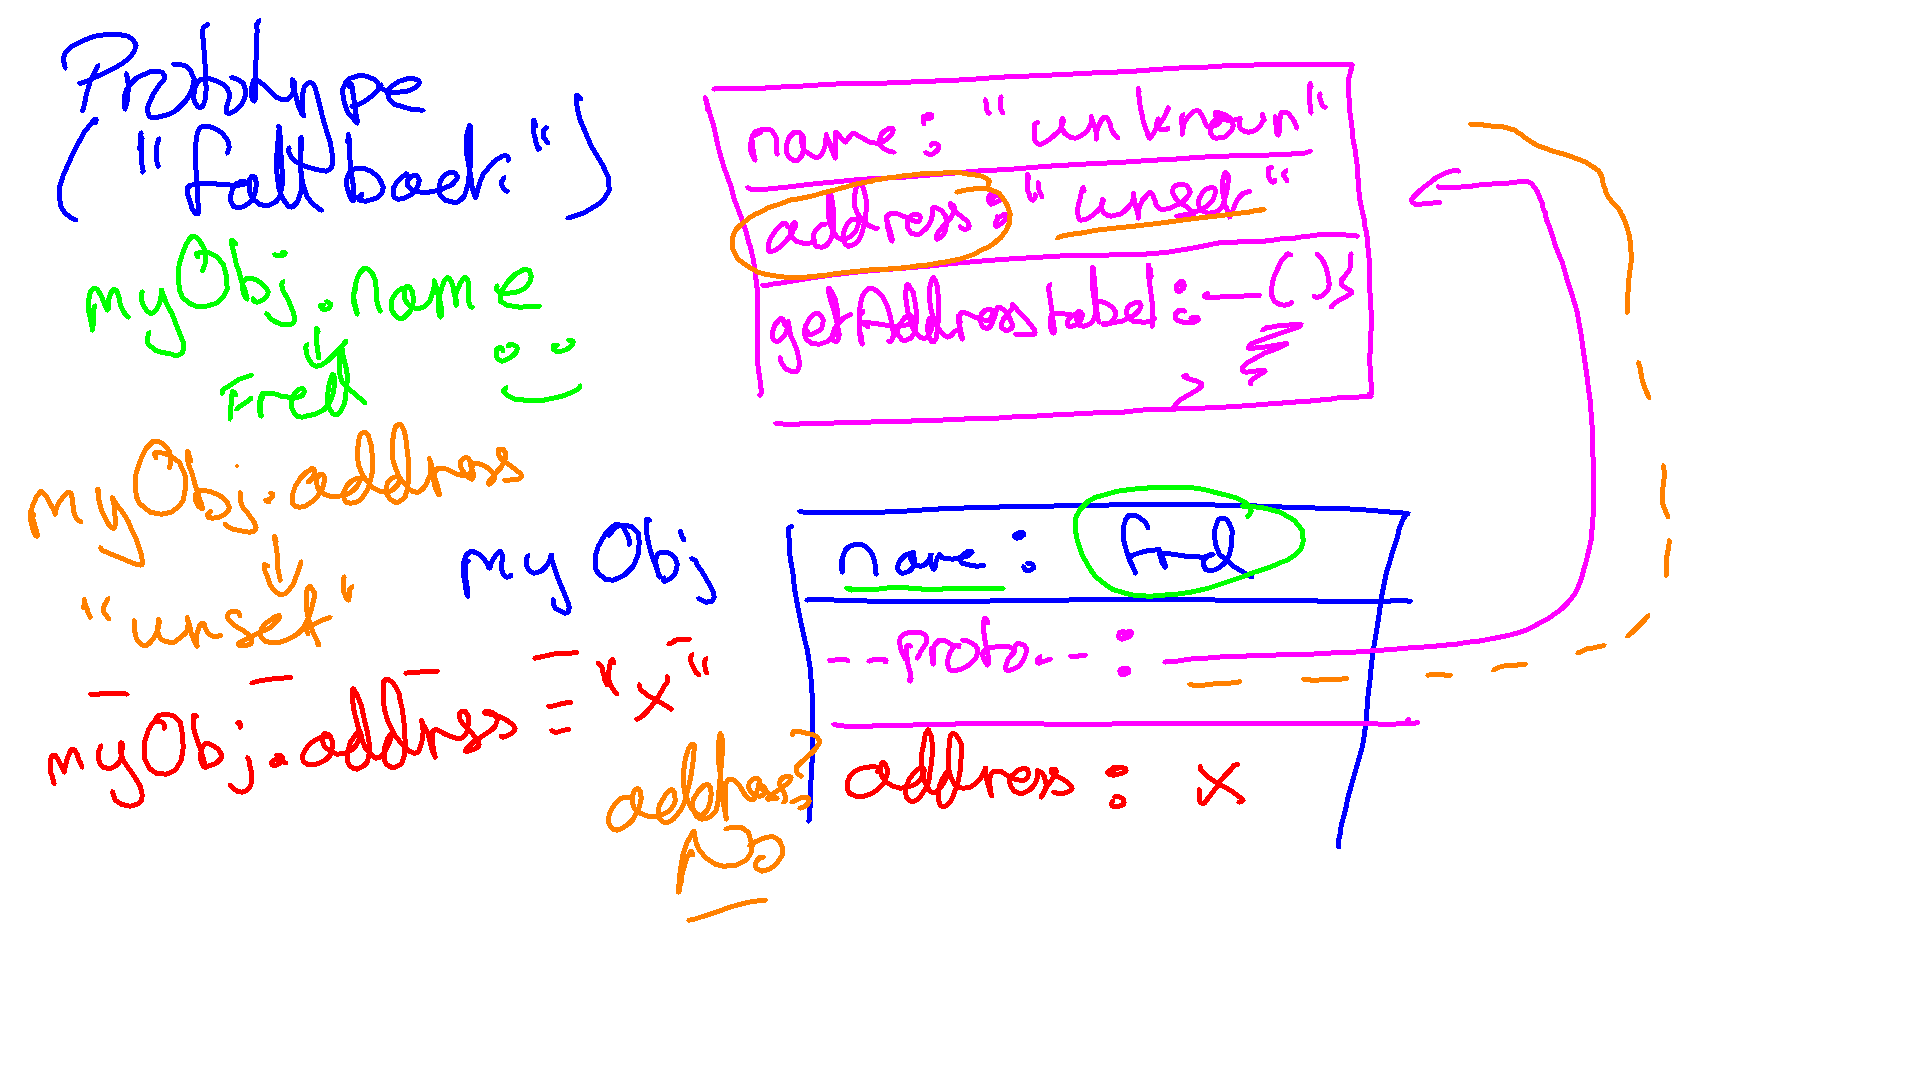 Prototype
("fallback")
myObj.name
Fred
myObj.address
"unset"
myObj.address = "x"
name: "unknown"
address: "unset"
getAddressLabel: —(){
}
my Obj
name: Fred
--proto--:
address: x
address?
No